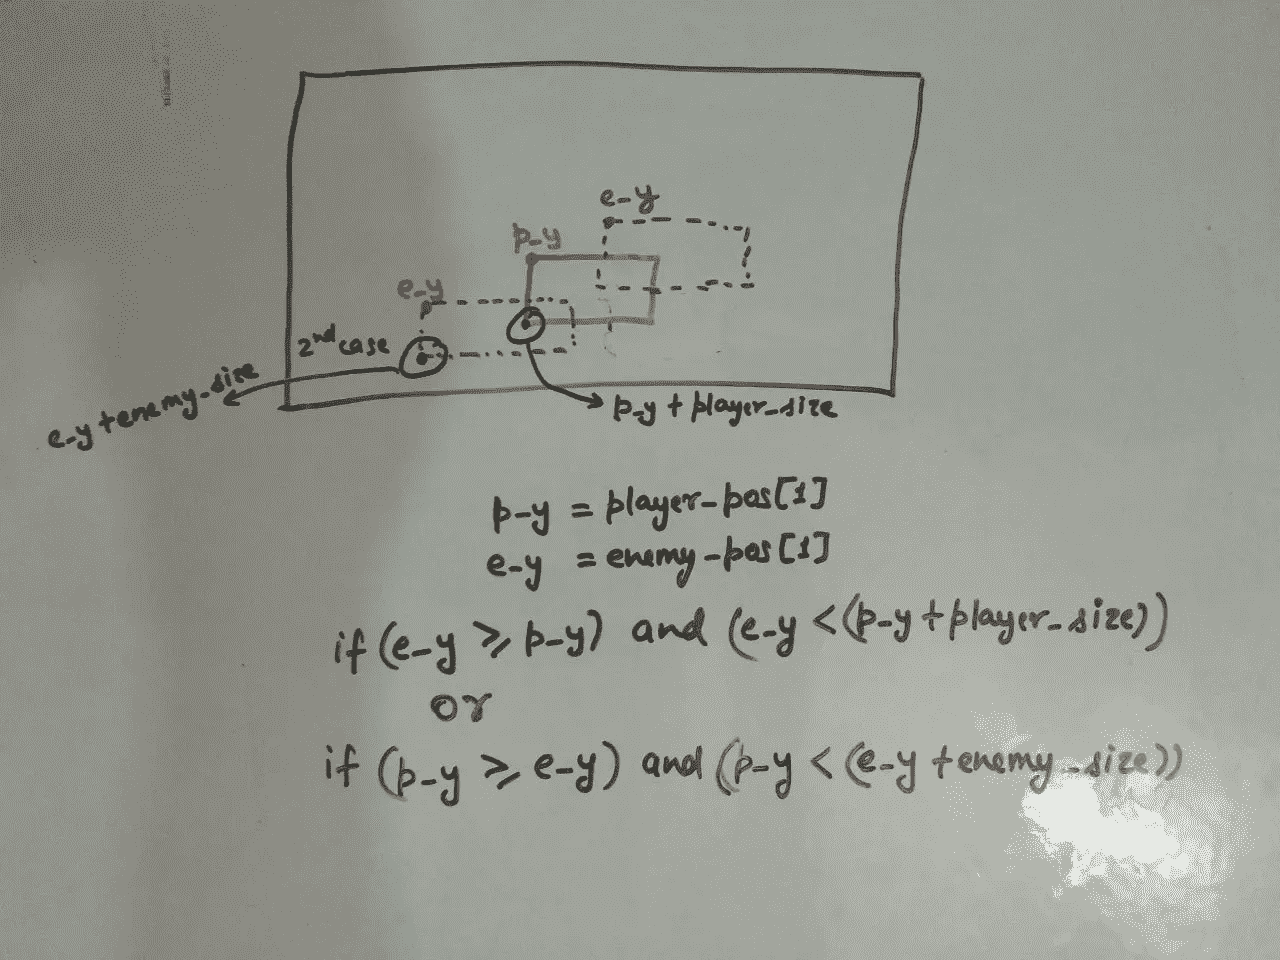 e-y
p-y
e-y
2nd case
e-y + enemy-size
p-y + player-size
p-y = player-pos[1]
e-y = enemy-pos[1]
if (e-y ≥ p-y) and (e-y < (p-y + player-size))
or
if (p-y ≥ e-y) and (p-y < (e-y + enemy-size))